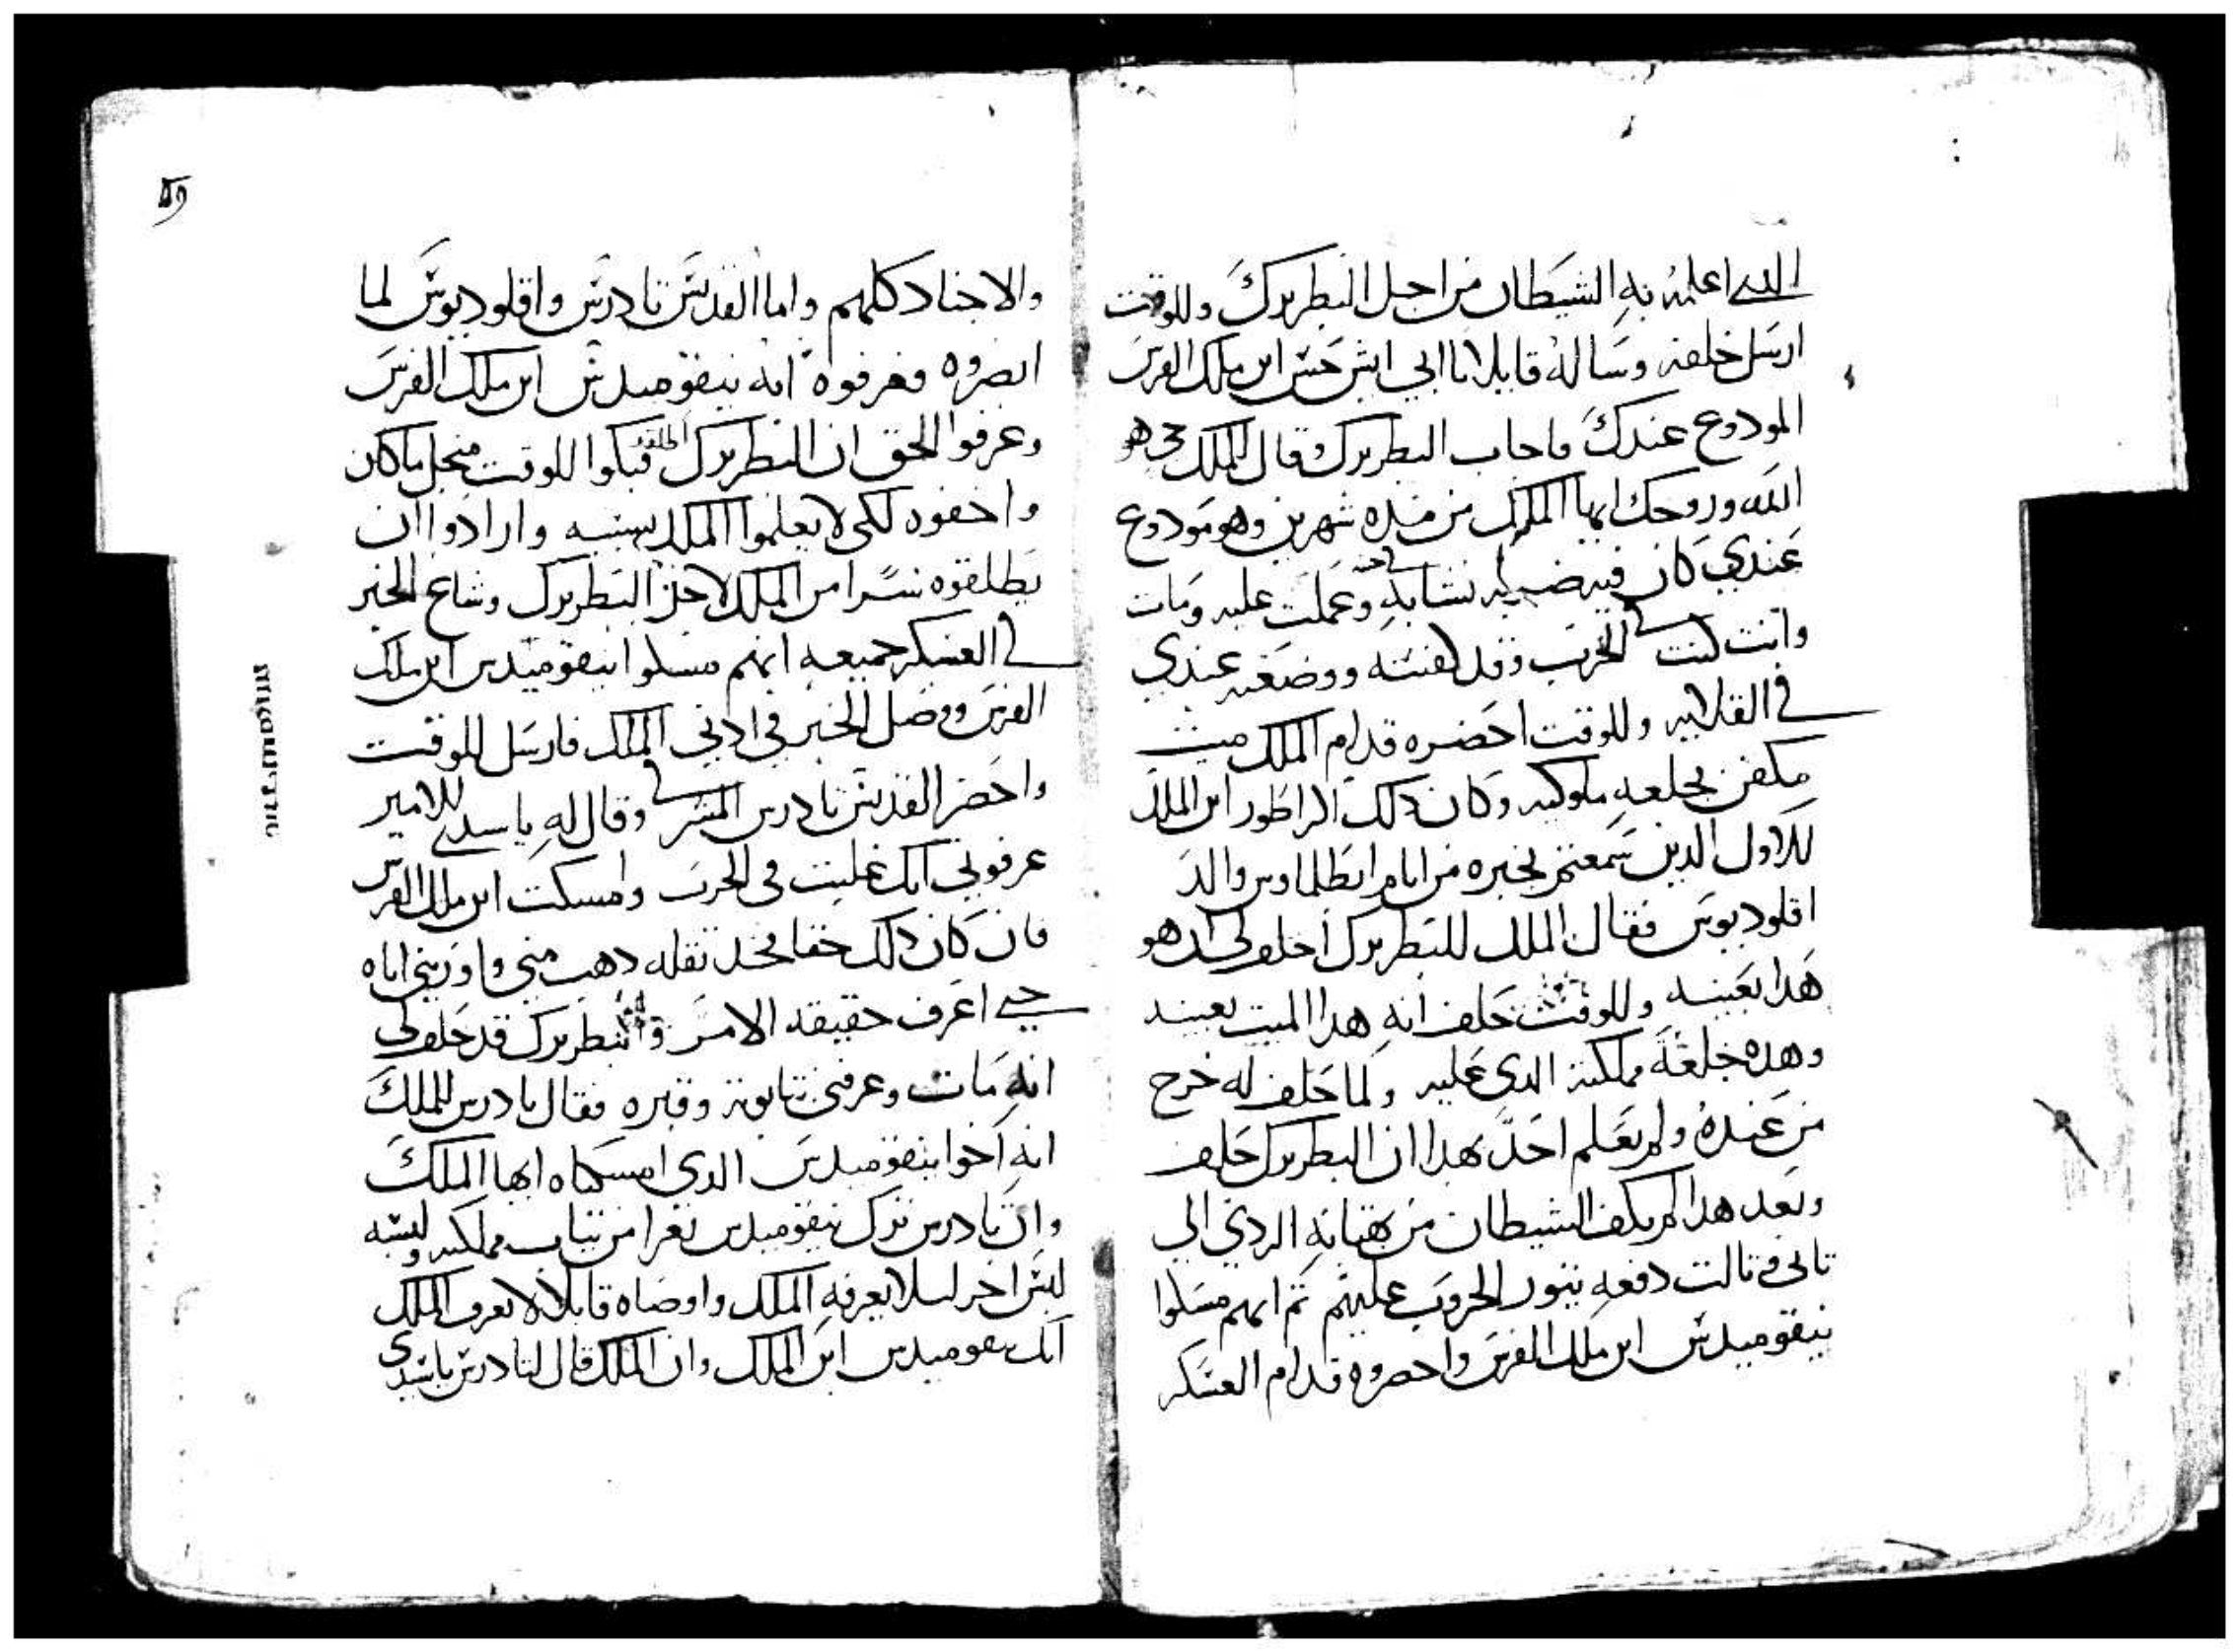 الدي اعلمه به الشيطان من اجل البطريرك وللوقت
ارسل خلفه وساله قايلا يا ابي ايش حس ابن ملك الفرس
المودوع عندك فاجاب البطريرك وقال للملك حي هو
الله وروحك ايها الملك من مده شهرين وهو مودوع
عندي كان فيه ضربه نشابه وعملت عليه ومات
وانت كنت في الحرب وقد كفنته ووضعته عندي
في القلايه وللوقت احضره قدام الملك ميت
مكفن بحلعه ملوكيه وكان دلك الراطور ابن الملك
للاول الدين سمعتم بخبره من ايام ابطلماوس والد
اقلوديوس فقال الملك للبطريرك احلف لي انه هو
هدا بعينه وللوقت حلف انه هدا الميت بعينه
وهده خلعة مملكته الدي عليه ولما حلف له خرج
من عنده ولم يعلم احد بهدا ان البطريرك حلف
وبعد هدا لم يكف الشيطان من بهتانه الردي الي
تاني وتالت دفعه بتور الحروب عليهم تم انهم مسكوا
نيقوميدس ابن ملك الفرس واحضروه قدام العسكر
٥٩
والاجناد كلهم واما القديس تادرس واقلوديوس لما
ابصروه فعرفوه انه نيقوميدس ابن ملك الفرس
وعرفوا الحق ان البطريرك اطلقه فبكوا للوقت منجل ما كان
واخفوه لكي لا يعلموا الملك بسببه وارادوا ان
يطلقوه سرا من الملك لاجل البطريرك وشاع الخبر
في العسكر جميعه انهم مسكوا نيقوميدس ابن ملك
الفرس ووصل الخبر في ادني الملك فارسل للوقت
واحضر القديس تادرس المشرقي وقال له يا سيدي الامير
عرفوني انك غلبت في الحرب وامسكت ابن ملك الفرس
فان كان دلك حقا فخد تقله دهب مني واوريني اياه
حتي اعرف حقيقه الامر والبطريرك قد حلف لي
انه مات وعرفني تابوته وقبره فقال تادرس للملك
انه اخوا نيقوميدس الدي امسكناه ايها الملك
وان تادرس ترك نيقوميدس تعرا من تياب مملكته ولبسه
لبس اخر ليلا يعرفه الملك واوصاه قايلا لا تعرف الملك
انك نيقوميدس ابن الملك وان الملك قال لتادرس يا سيدي